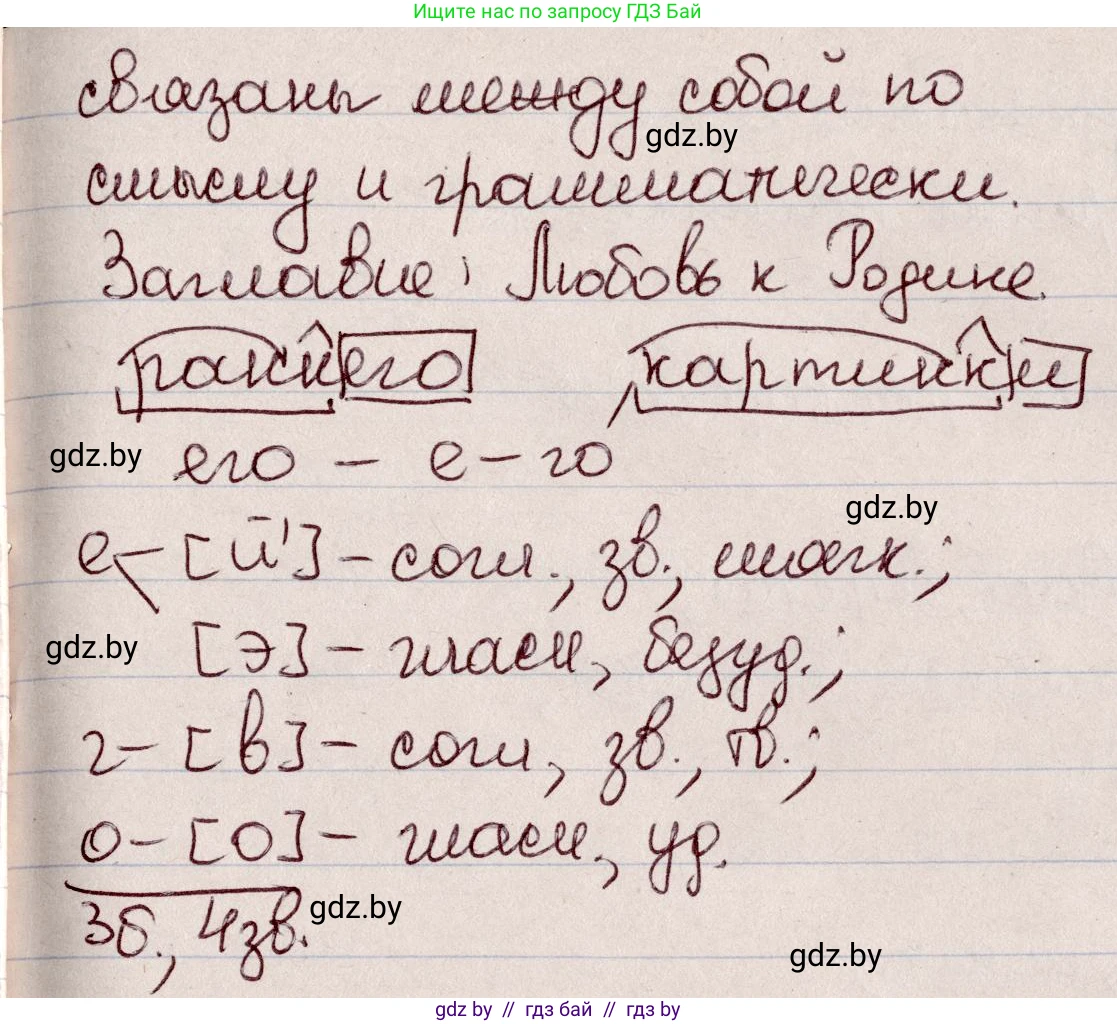 Ищите нас по запросу ГДЗ Бай
связаны между собой по
gdz.by
смыслу и грамматически.
Заглавие: Любовь к Родине.
раннего картинки
gdz.by его – е – го
gdz.by
е – [й'] – согл., зв., мягк.;
gdz.by [э] – гласн, безуд.;
г – [в] – согл, зв., тв.;
о – [о] – гласн., уд.
3б., 4зв. gdz.by
gdz.by
gdz.by // гдз бай // gdz.by